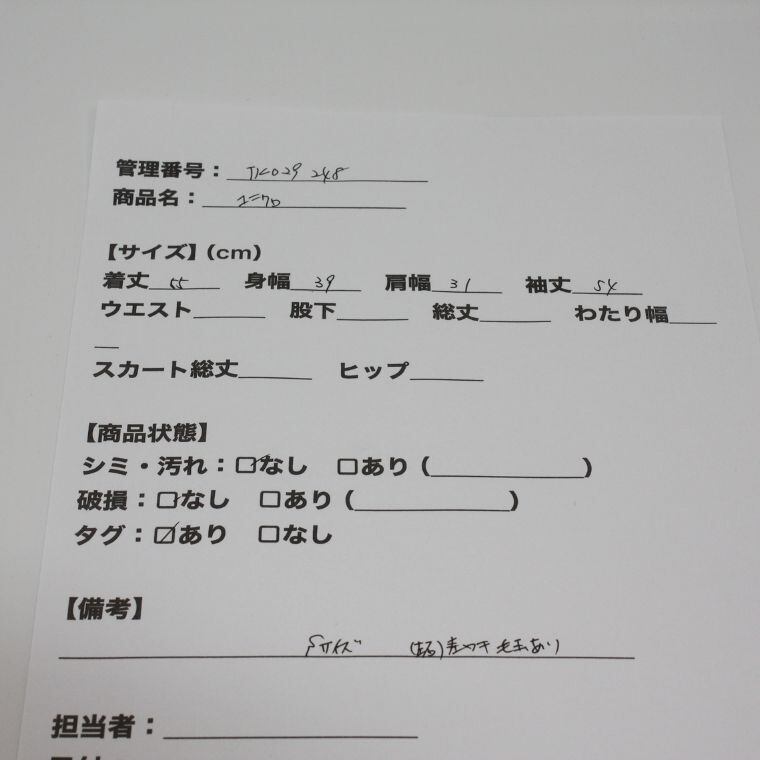 管理番号：TK029 248
商品名：ユニクロ
【サイズ】(cm)
着丈 55 身幅 39 肩幅 31 袖丈 54
ウエスト 股下 総丈 わたり幅
スカート総丈 ヒップ
【商品状態】
シミ・汚れ：☑なし □あり ( )
破損：☑なし □あり ( )
タグ：☑あり □なし
【備考】
Sサイズ 毛玉あり
担当者：